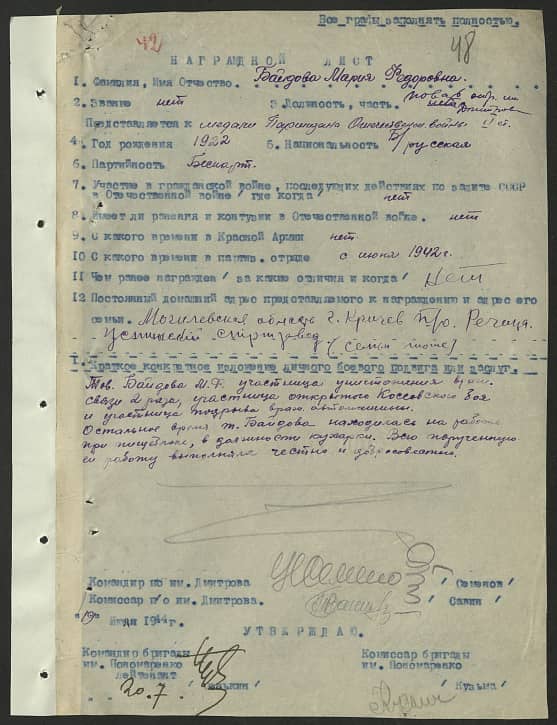 Все графы заполнять полностью.
42
48
НАГРАДНОЙ ЛИСТ
1. Фамилия, Имя Отчество. Байдова Мария Федоровна.
2. Звание нет 3. Должность, часть. повар
Представляется к медали Партизана Отечествен. войны II ст.
4. Год рождения 1922 5. Национальность Б/русская
6. Партийность Беспарт.
7. Участие в гражданской войне, последующих действиях по защите СССР
в Отечественной войне/ где когда/ нет
8. Имеет ли ранения и контузии в Отечественной войне. нет
9. С какого времени в Красной Армии нет.
10 С какого времени в партиз. отряде с июня 1942 г.
11 Чем ранее награжден/ за какие отличия и когда/ Нет
12 Постоянный домашний адрес представляемого к награждению и адрес его
семьи. Могилевская область г. Кричев п/о. Речица
спиртзавод
(семьи тоже)
1. Краткое конкретное изложение личного боевого подвига или заслуг.
Тов. Байдова М.Ф. участница уничтожения враж.
связи 2 раза, участница открытого Коссовского боя
и участница подрыва враж. автомашины.
Остальное время т. Байдова находилась на работе
при пищеблоке, в должности кухарки. Всю порученную
ей работу выполняла честно и добросовестно.
Командир п/о им. Дмитрова / Семенов /
Комиссар п/о им. Дмитрова. / Савин /
"19" июля 1944 г.
УТВЕРЖДАЮ.
Командир бригады Комиссар бригады
им. Пономаренко им. Пономаренко
лейтенант
20.7. / Кузьма /